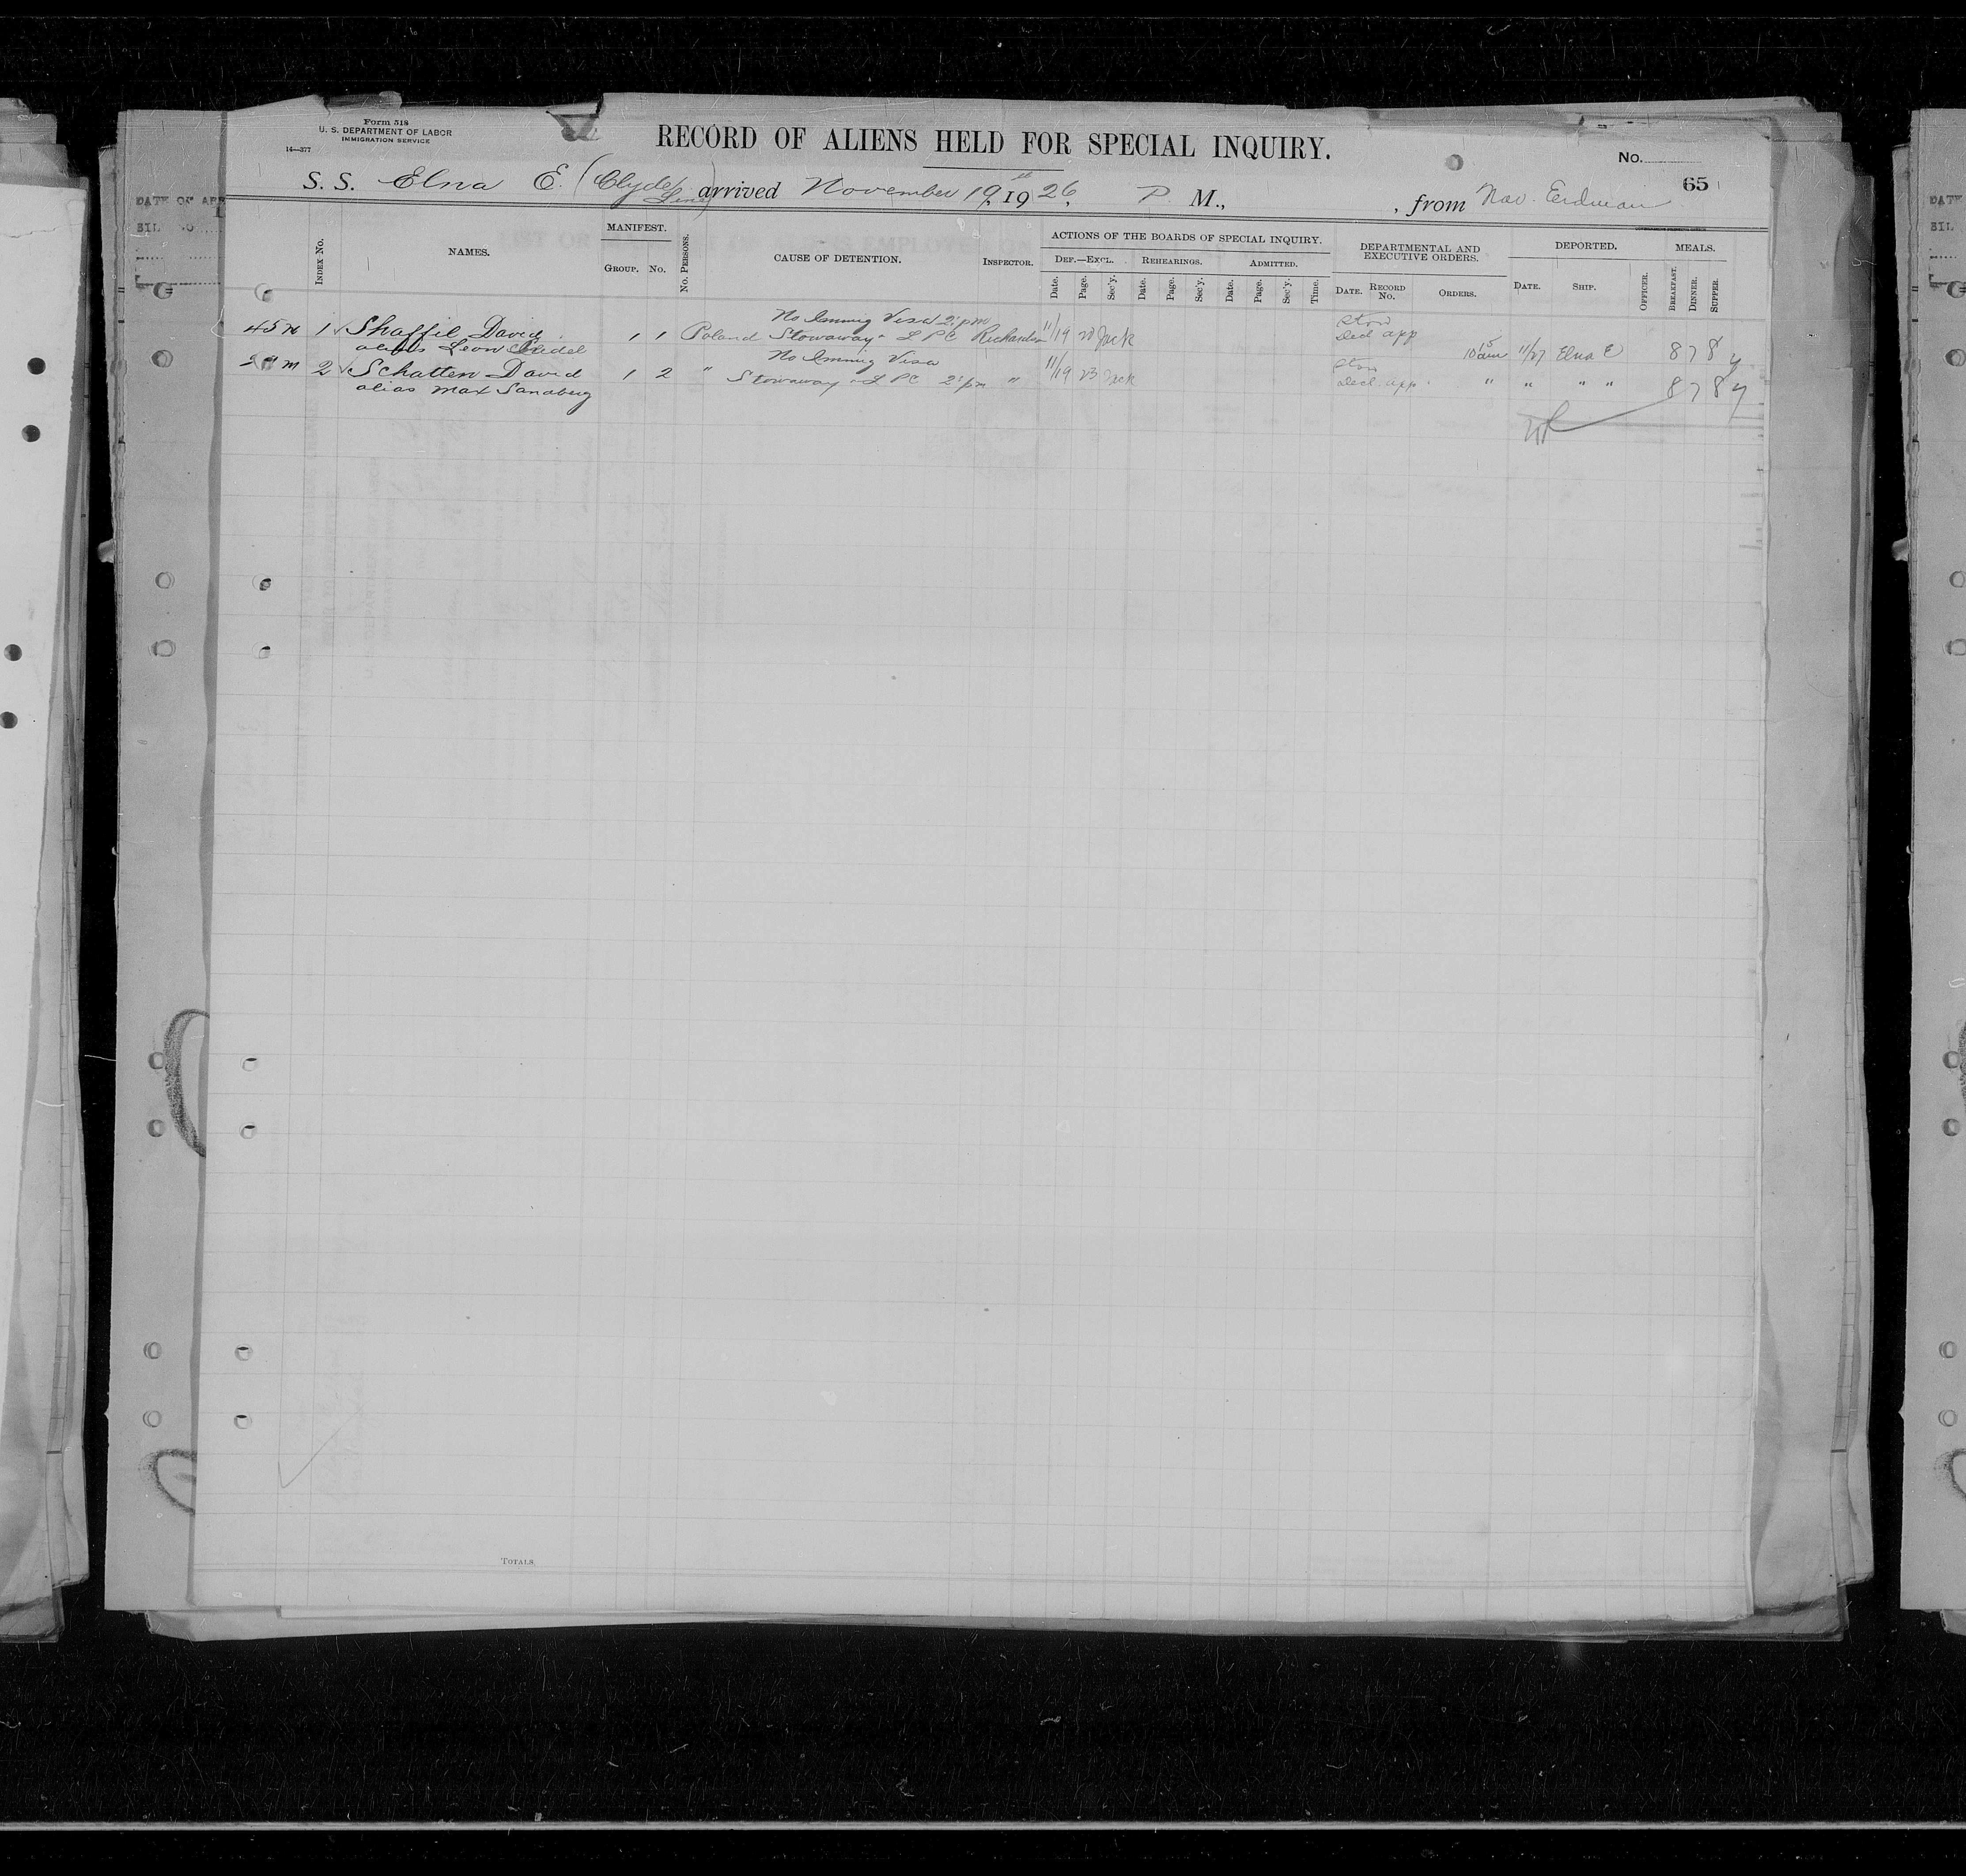 Form 518
U. S. DEPARTMENT OF LABOR
IMMIGRATION SERVICE
14—377
RECORD OF ALIENS HELD FOR SPECIAL INQUIRY.
No.
65
S. S. Elna E. (Clyde Line) arrived November 19th, 1926, P. M., , from Nav.
DATE OF
INDEX No.
NAMES.
MANIFEST.
GROUP. No.
No. PERSONS.
CAUSE OF DETENTION.
INSPECTOR.
ACTIONS OF THE BOARDS OF SPECIAL INQUIRY.
DEF.—EXCL. REHEARINGS. ADMITTED.
Date. Page. Sec'y. Date. Page. Sec'y. Date. Page. Sec'y. Time.
DEPARTMENTAL AND
EXECUTIVE ORDERS.
DATE. RECORD No. ORDERS.
DEPORTED.
DATE. SHIP. OFFICER.
MEALS.
BREAKFAST. DINNER. SUPPER.
No Immig Visa 2:pm
45 m 1 Shaffil David 1 1 Poland Stowaway - L P C Richardson 11/19 Jack Decl app 10 15 am 11/27 Elna E 8 7 8 y
alias Leon
No Immig Visa
m 2 Schatten David 1 2 " Stowaway - L P C 2:pm " 11/19 23 Jack Decl. app. " " " " 8 7 8 y
alias Max Sandberg
TOTALS.